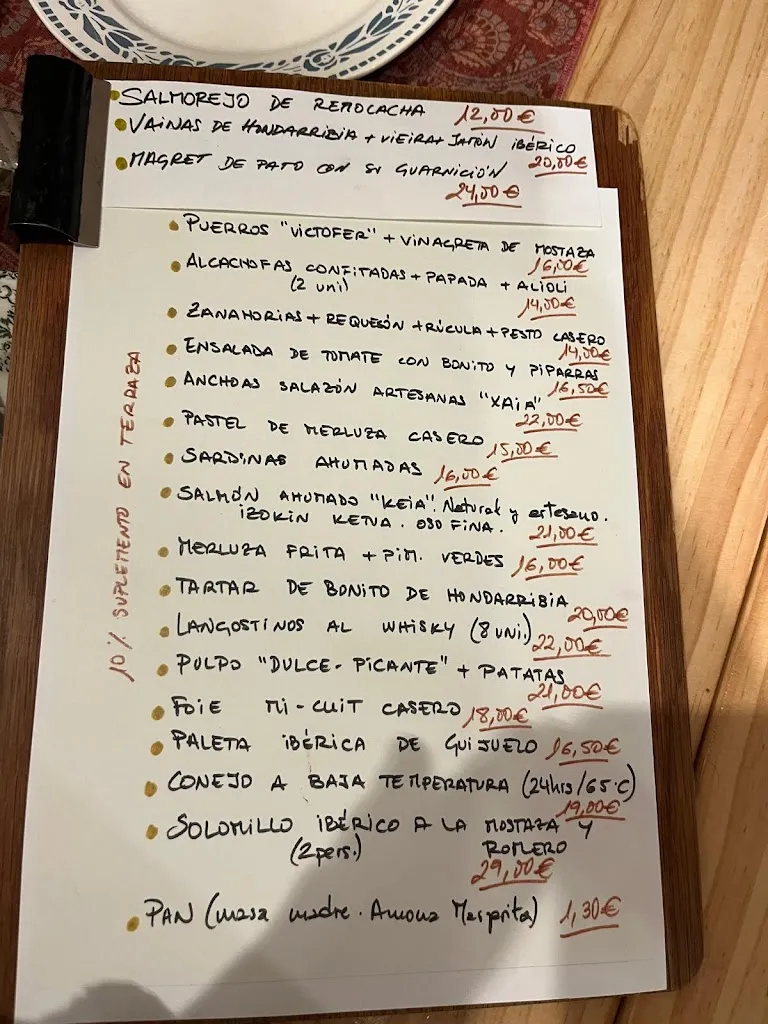 SALMOREJO DE REMOLACHA 12,00€
VAINAS DE HONDARRIBIA + VIEIRA + JAMÓN IBÉRICO
20,00€
MAGRET DE PATO CON SU GUARNICIÓN
24,00€
PUERROS "VICTOFER" + VINAGRETA DE MOSTAZA
16,00€
ALCACHOFAS CONFITADAS + PAPADA + ALIOLI
(2 uni)
14,00€
ZANAHORIAS + REQUESÓN + RÚCULA + PESTO CASERO
14,00€
ENSALADA DE TOMATE CON BONITO Y PIPARRAS
16,50€
ANCHOAS SALAZÓN ARTESANAS "XAIA"
22,00€
PASTEL DE MERLUZA CASERO 15,00€
SARDINAS AHUMADAS 16,00€
SALMÓN AHUMADO "KEIA". Natural y artesano.
IZOKIN KETUA. OSO FINA. 21,00€
MERLUZA FRITA + PIM. VERDES 16,00€
TARTAR DE BONITO DE HONDARRIBIA
20,00€
LANGOSTINOS AL WHISKY (8 UNI.) 22,00€
PULPO "DULCE-PICANTE" + PATATAS
21,00€
FOIE MI-CUIT CASERO 18,00€
PALETA IBÉRICA DE GUIJUELO 16,50€
CONEJO A BAJA TEMPERATURA (24hrs/65ºC)
19,00€
SOLOMILLO IBÉRICO A LA MOSTAZA Y
(2 pers.) ROMERO
29,00€
PAN (masa madre. Amona Margarita) 1,30€
10% SUPLEMENTO EN TERRAZA